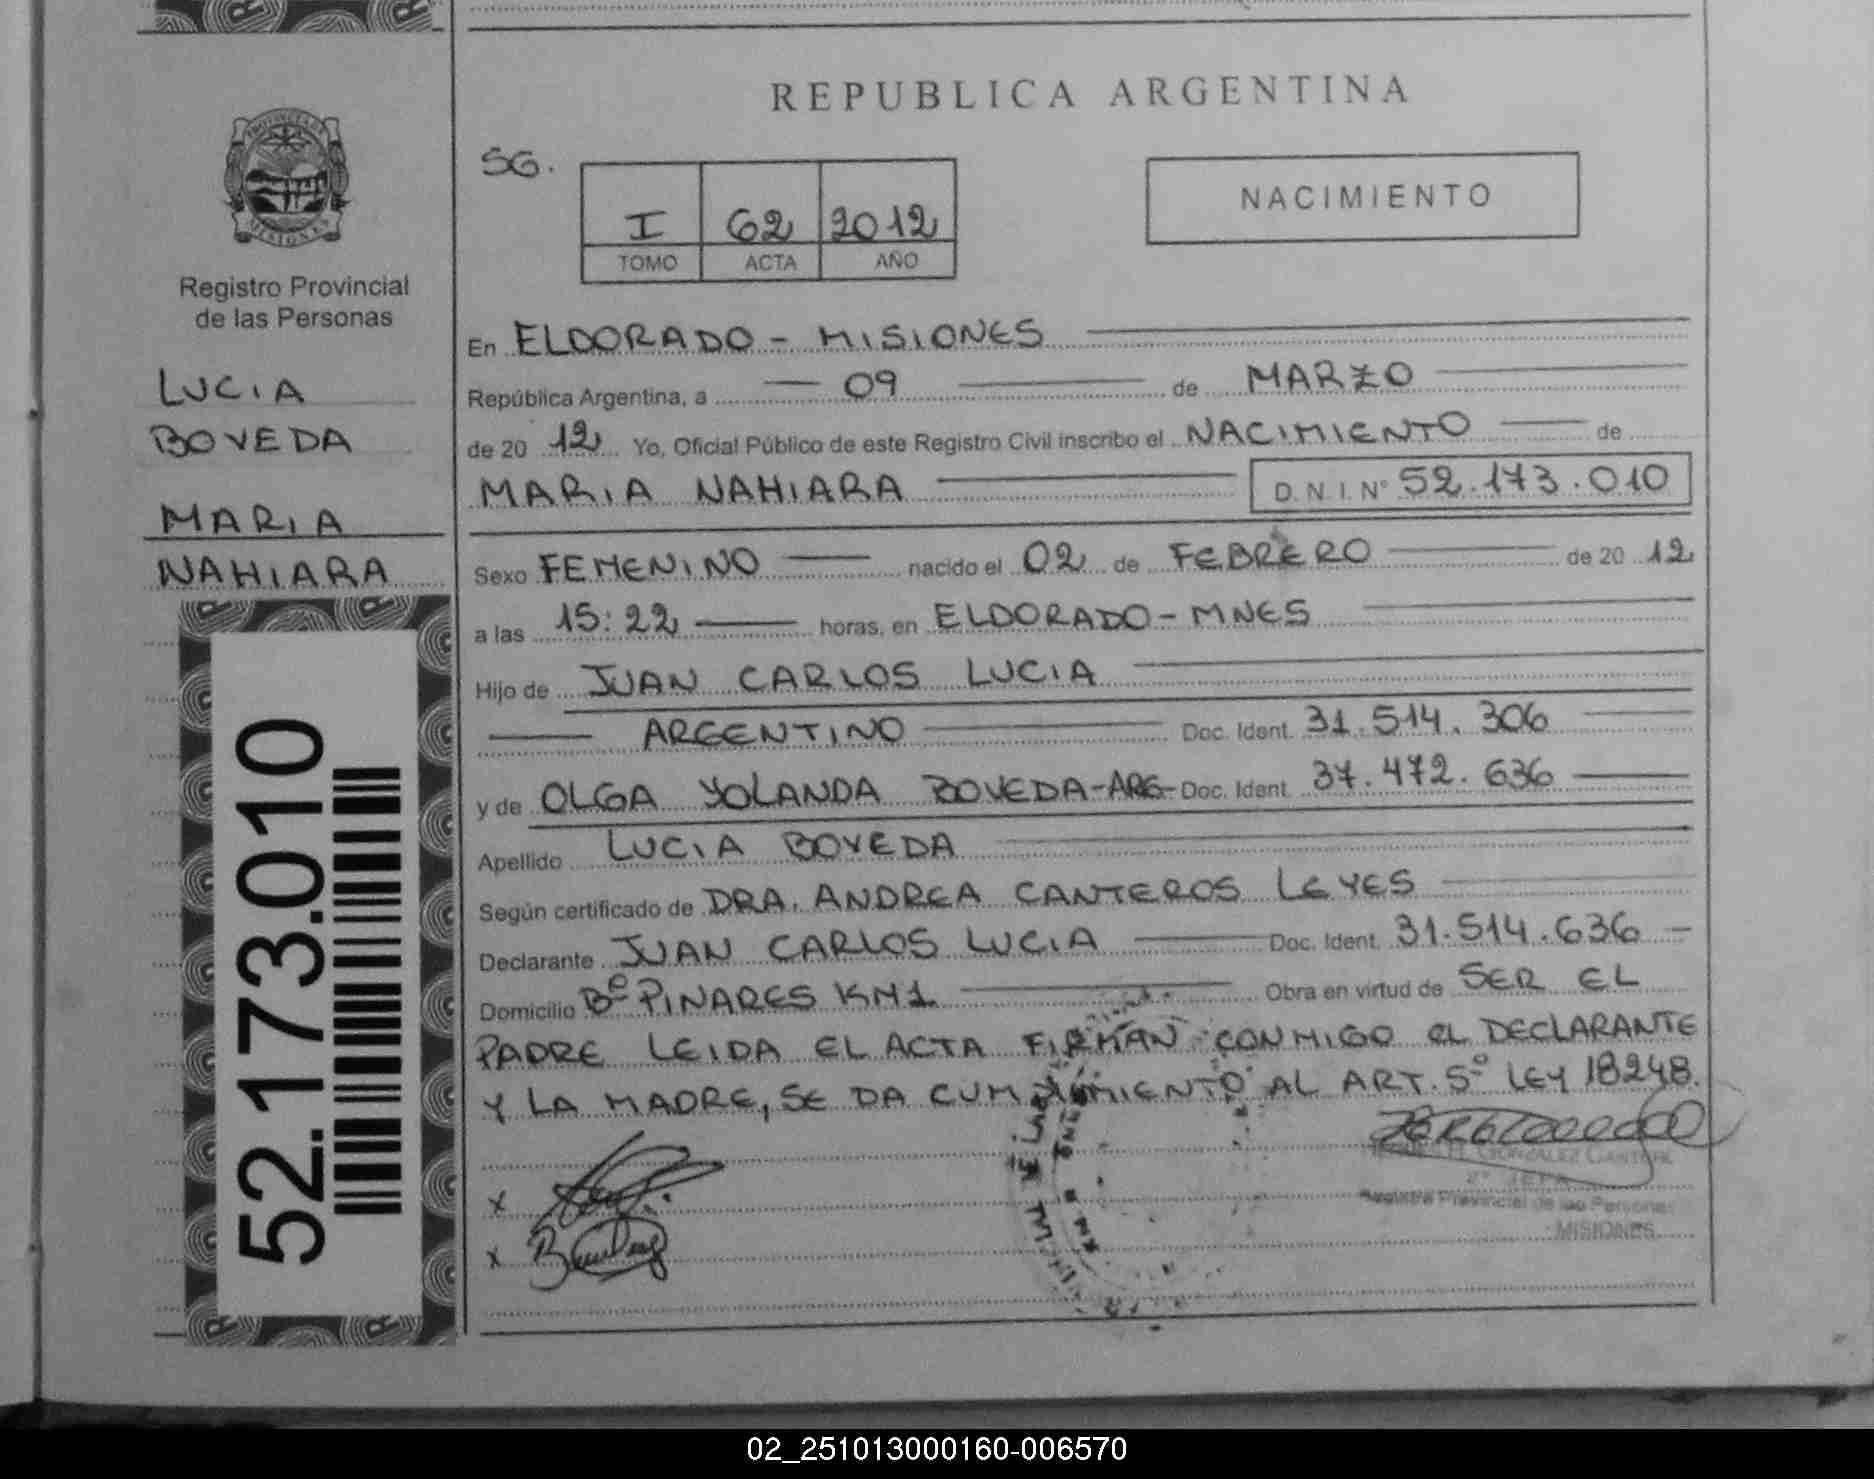 REPUBLICA ARGENTINA
PROVINCIA DE
MISIONES
Registro Provincial
de las Personas
LUCIA
BOVEDA
MARIA
NAHIARA
52.173.010
SG.
I 62 2012
TOMO ACTA AÑO
NACIMIENTO
En ELDORADO - MISIONES
República Argentina, a 09 de MARZO
de 20 12 Yo, Oficial Público de este Registro Civil inscribo el NACIMIENTO de
MARIA NAHIARA D.N.I.Nº 52.173.010
Sexo FEMENINO nacido el 02 de FEBRERO de 20 12
a las 15:22 horas, en ELDORADO - MNES
Hijo de JUAN CARLOS LUCIA
ARGENTINO Doc. Ident. 31.514.306
y de OLGA YOLANDA BOVEDA-ARG- Doc. Ident. 37.472.636
Apellido LUCIA BOVEDA
Según certificado de DRA. ANDREA CANTEROS LEYES
Declarante JUAN CARLOS LUCIA Doc. Ident. 31.514.636
Domicilio Bº PINARES KM1 Obra en virtud de SER EL
PADRE LEIDA EL ACTA FIRMAN CONMIGO EL DECLARANTE
Y LA MADRE, SE DA CUMPLIMIENTO AL ART. 5º LEY 18248.
x
x
GONZALEZ
2º JEFA
Registro Provincial de las Personas
MISIONES
02_251013000160-006570